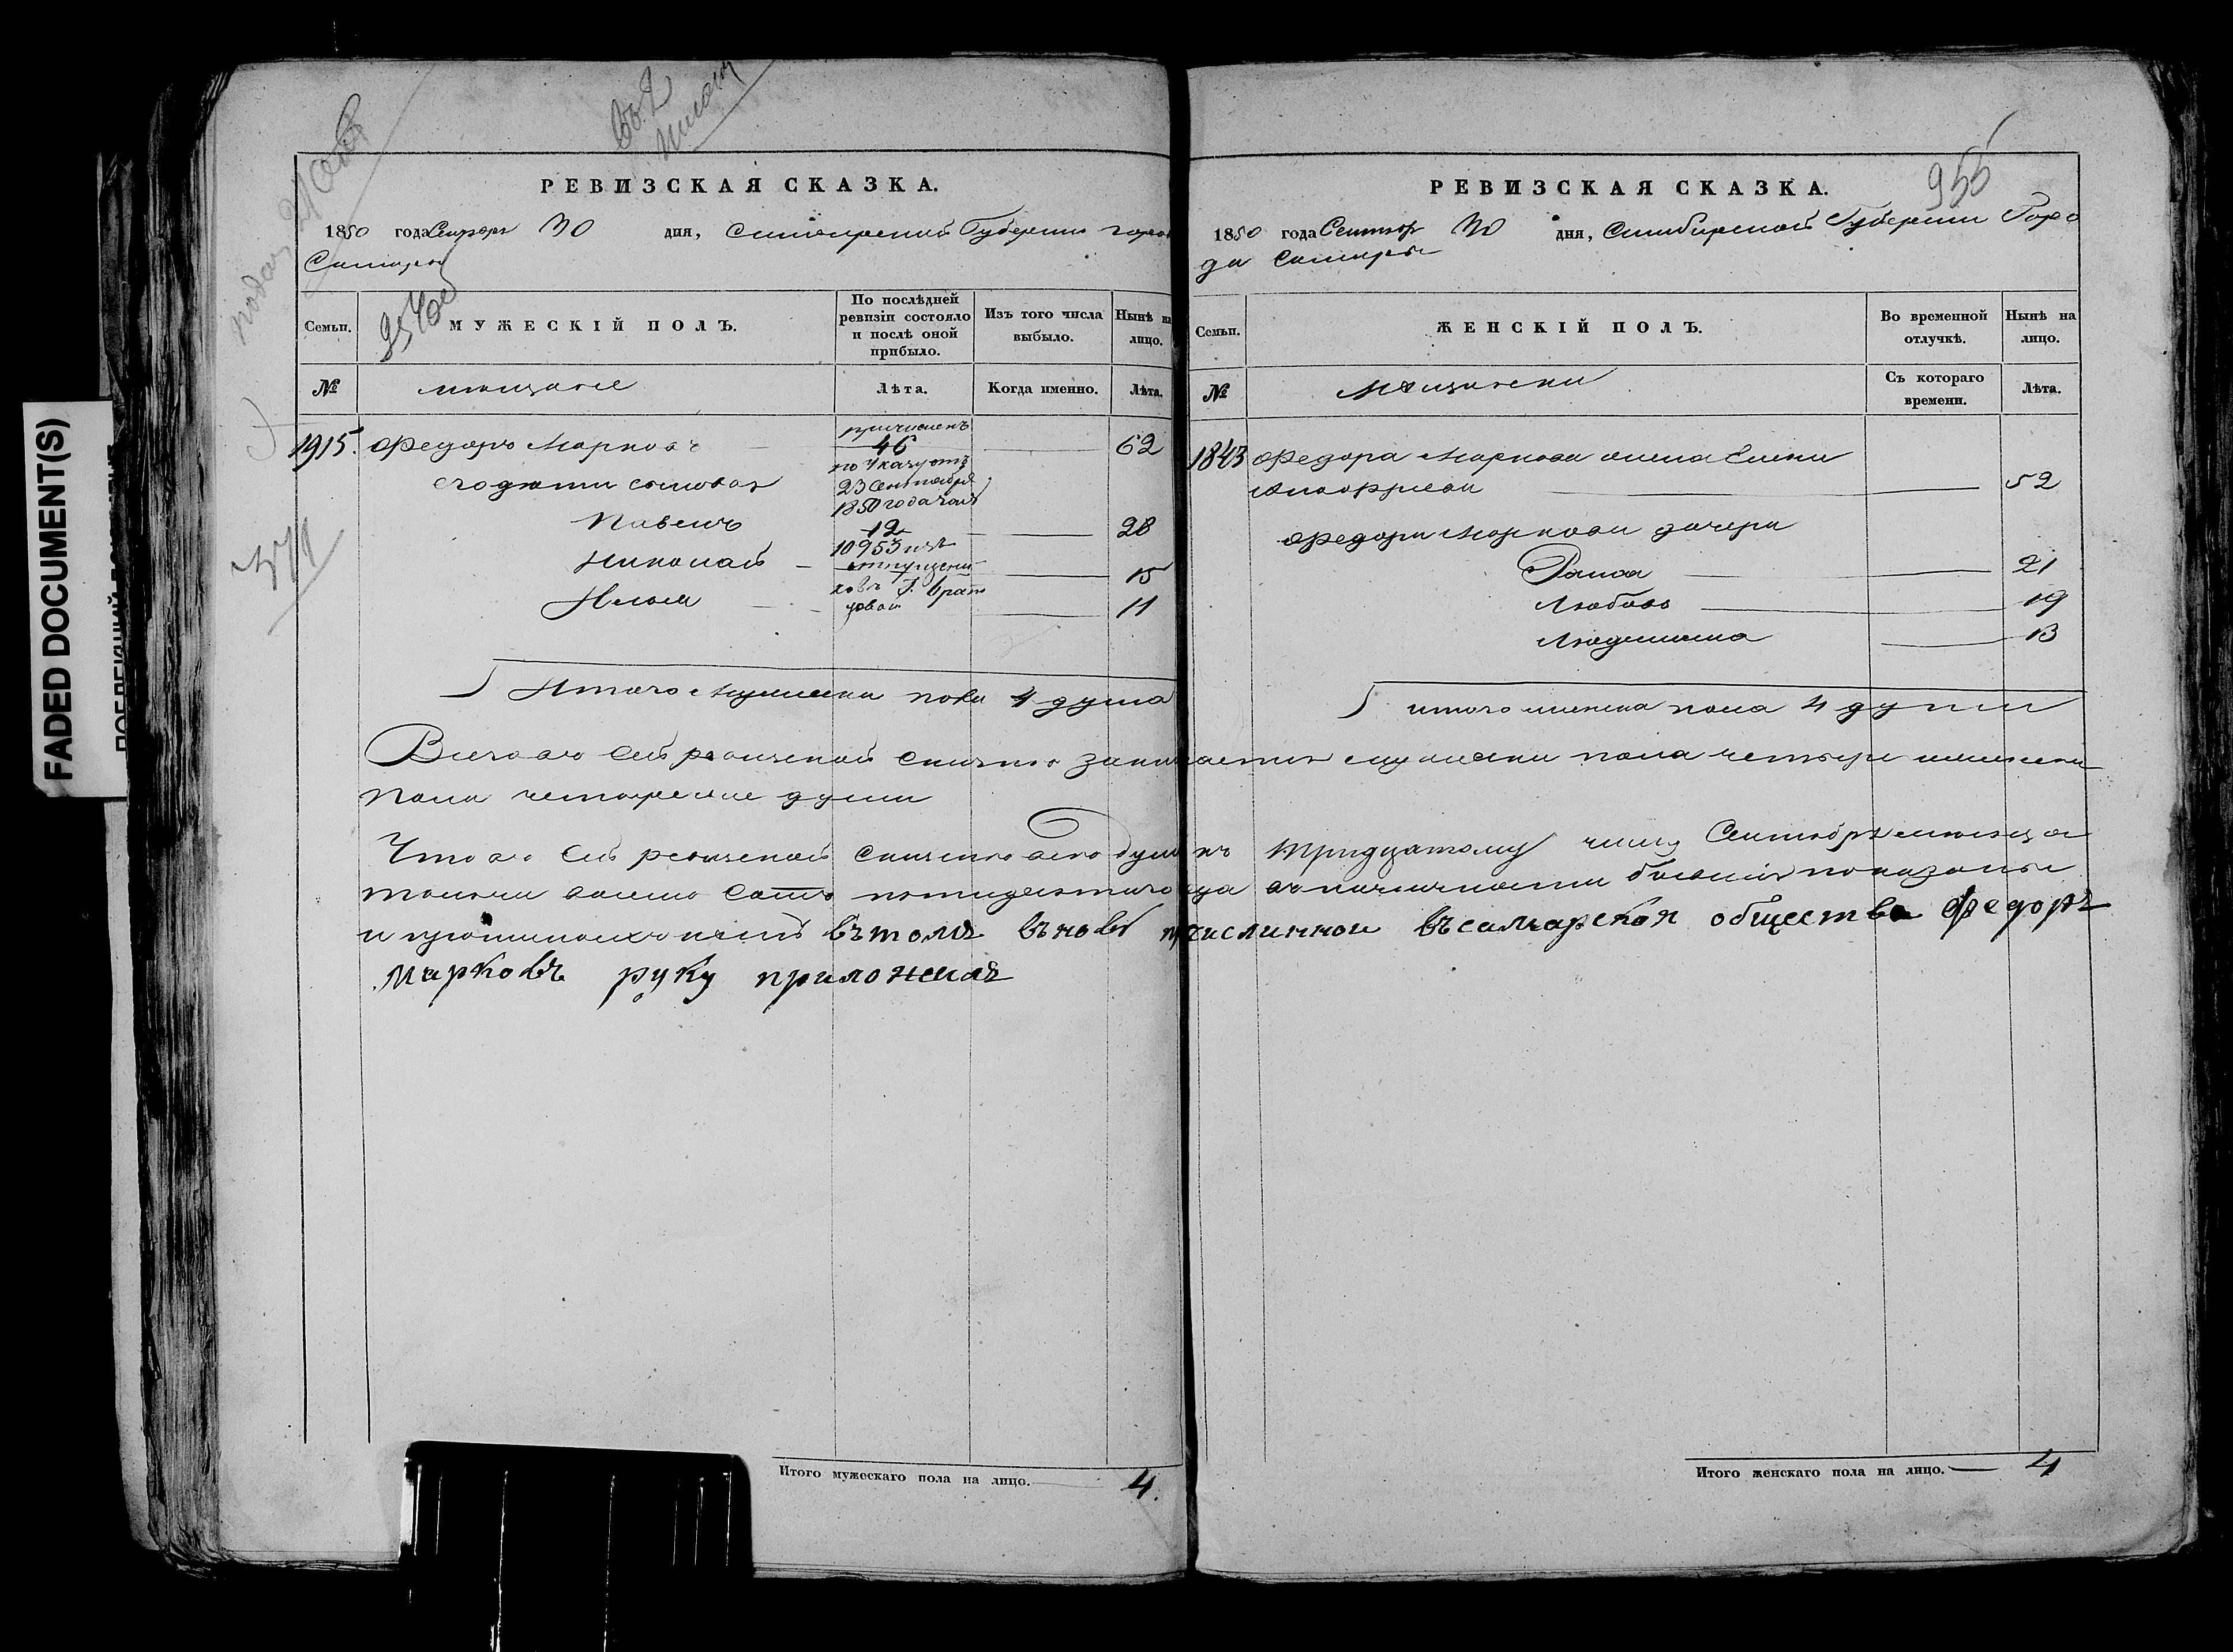 955
РЕВИЗСКАЯ СКАЗКА.
1850 года Сентяб 30 дня, Симбирской Губернии город
Самары
Семьи.
МУЖЕСКІЙ ПОЛЪ.
По послѣдней ревизіи состояло и послѣ оной прибыло.
Изъ того числа выбыло.
Нынѣ на лицо.
№
мещане
Лѣта.
Когда именно.
Лѣта.
1915. Федоръ Марковъ 46 62
причисленъ
по Указу отъ
23 Сентября
1850 года за №
10953 изъ
Павелъ 12 28
Николай 15
Илья 11
Итого мужеска пола 4 душа
РЕВИЗСКАЯ СКАЗКА.
1850 года Сентяб 30 дня, Симбирской Губернии Горо
да Самары
Семьи.
ЖЕНСКІЙ ПОЛЪ.
Во временной отлучкѣ.
Нынѣ на лицо.
№
Мещански
Съ котораго времени.
Лѣта.
1843 Федора Маркова жена Елена
52
Федора Маркова дочери
Раиса 21
Любовь 19
Людмила 13
итого женска пола 4 души
Всего въ сей ревизской сказке мужеска пола четыре женска
пола четыре души
Что въ сей ревизской сказке все души къ тридцатому числу Сентября месяца
тысяча восемь сотъ пятидесятаго года въ наличности бывшия показаны
и прописныхъ нетъ въ томъ вновь причисленной въ самарская общества Федоръ
Марковъ руку приложилъ
Итого мужескаго пола на лицо. 4.
Итого женскаго пола на лицо. 4
FADED DOCUMENT(S)